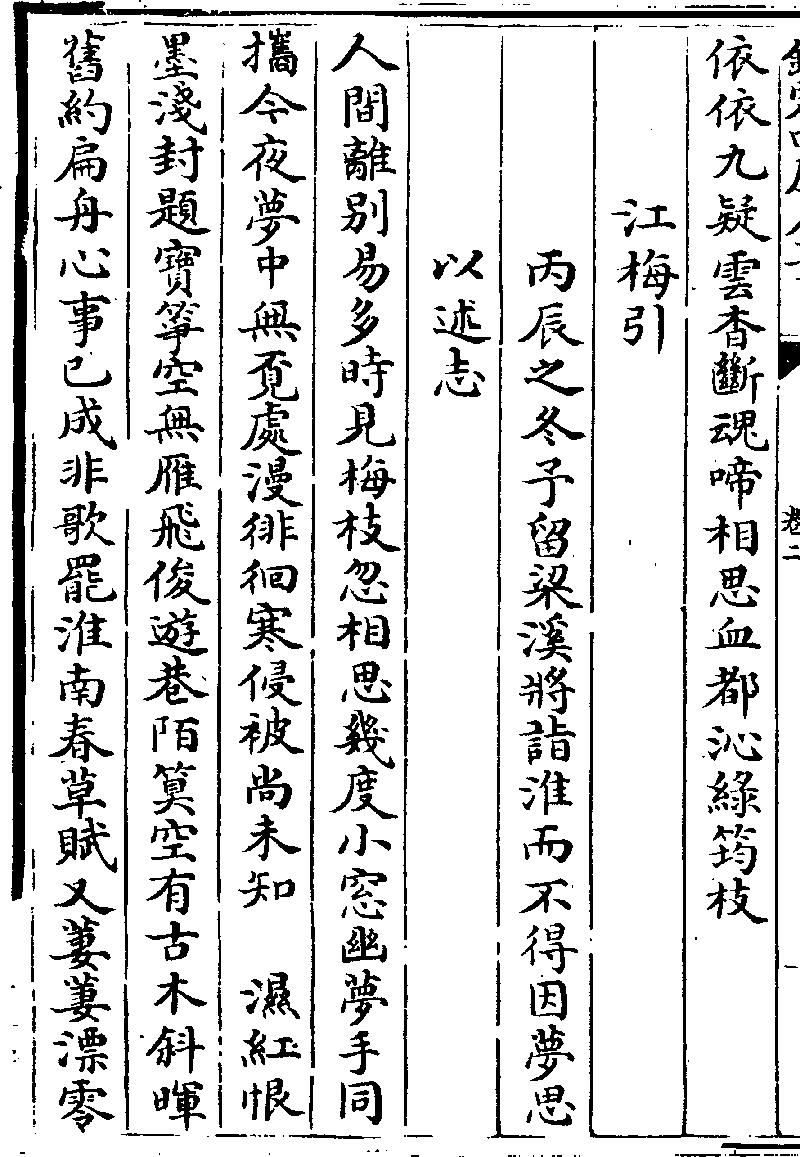 卷二
依依九疑雲杳斷魂啼相思血都沁綠筠枝
江梅引
丙辰之冬予留梁溪將詣淮而不得因夢思
以述志
人間離別易多時見梅枝忽相思幾度小窓幽夢手同
攜今夜夢中無覓處漫徘徊寒侵被尚未知　濕紅恨
墨淺封題寶筝空無雁飛俊遊巷陌筭空有古木斜暉
舊約扁舟心事已成非歌罷淮南春草賦又萋萋漂零